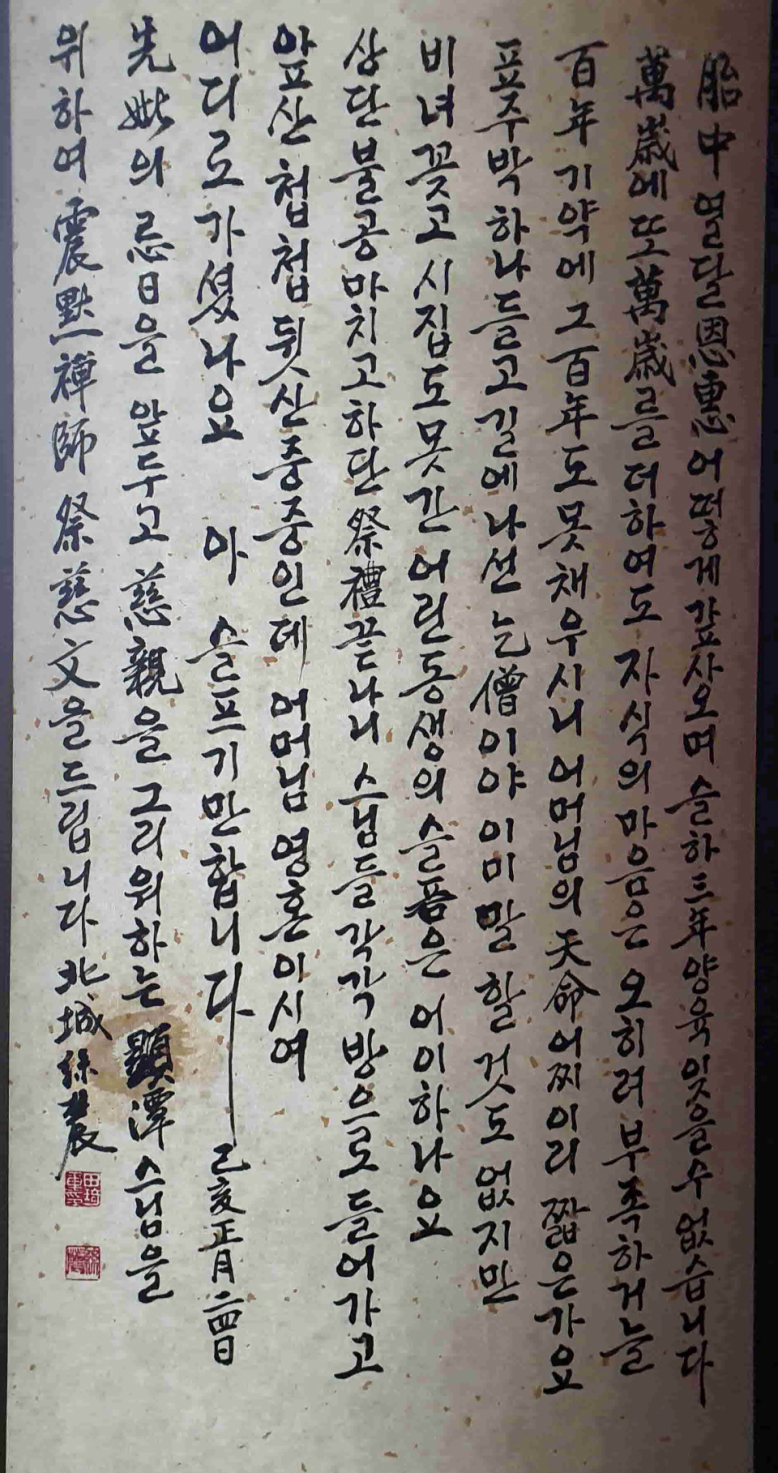 胎中열달恩惠어떻게갚사오며 슬하三年양육잊을수없습니다
萬歲에또萬歲를더하여도 자식의마음은 오히려부족하거늘
百年기약에그百年도못채우시니어머님의天命어찌이리 짧은가요
표주박하나들고길에나선 눈僧이야이미말할것도없지만
비녀꽂고시집도못간어린동생의슬픔은어이하나요
상단불공마치고하단祭禮끝나니 스님들각각방으로들어가고
앞산첩첩뒷산중중인데 어머님영혼이시여
어디로가셨나요 아 슬프기만합니다 己亥正月二四日
先妣의忌日을앞두고慈親을그리워하는顯潭스님을
위하여震黙禪師祭慈文을드립니다北城絲農